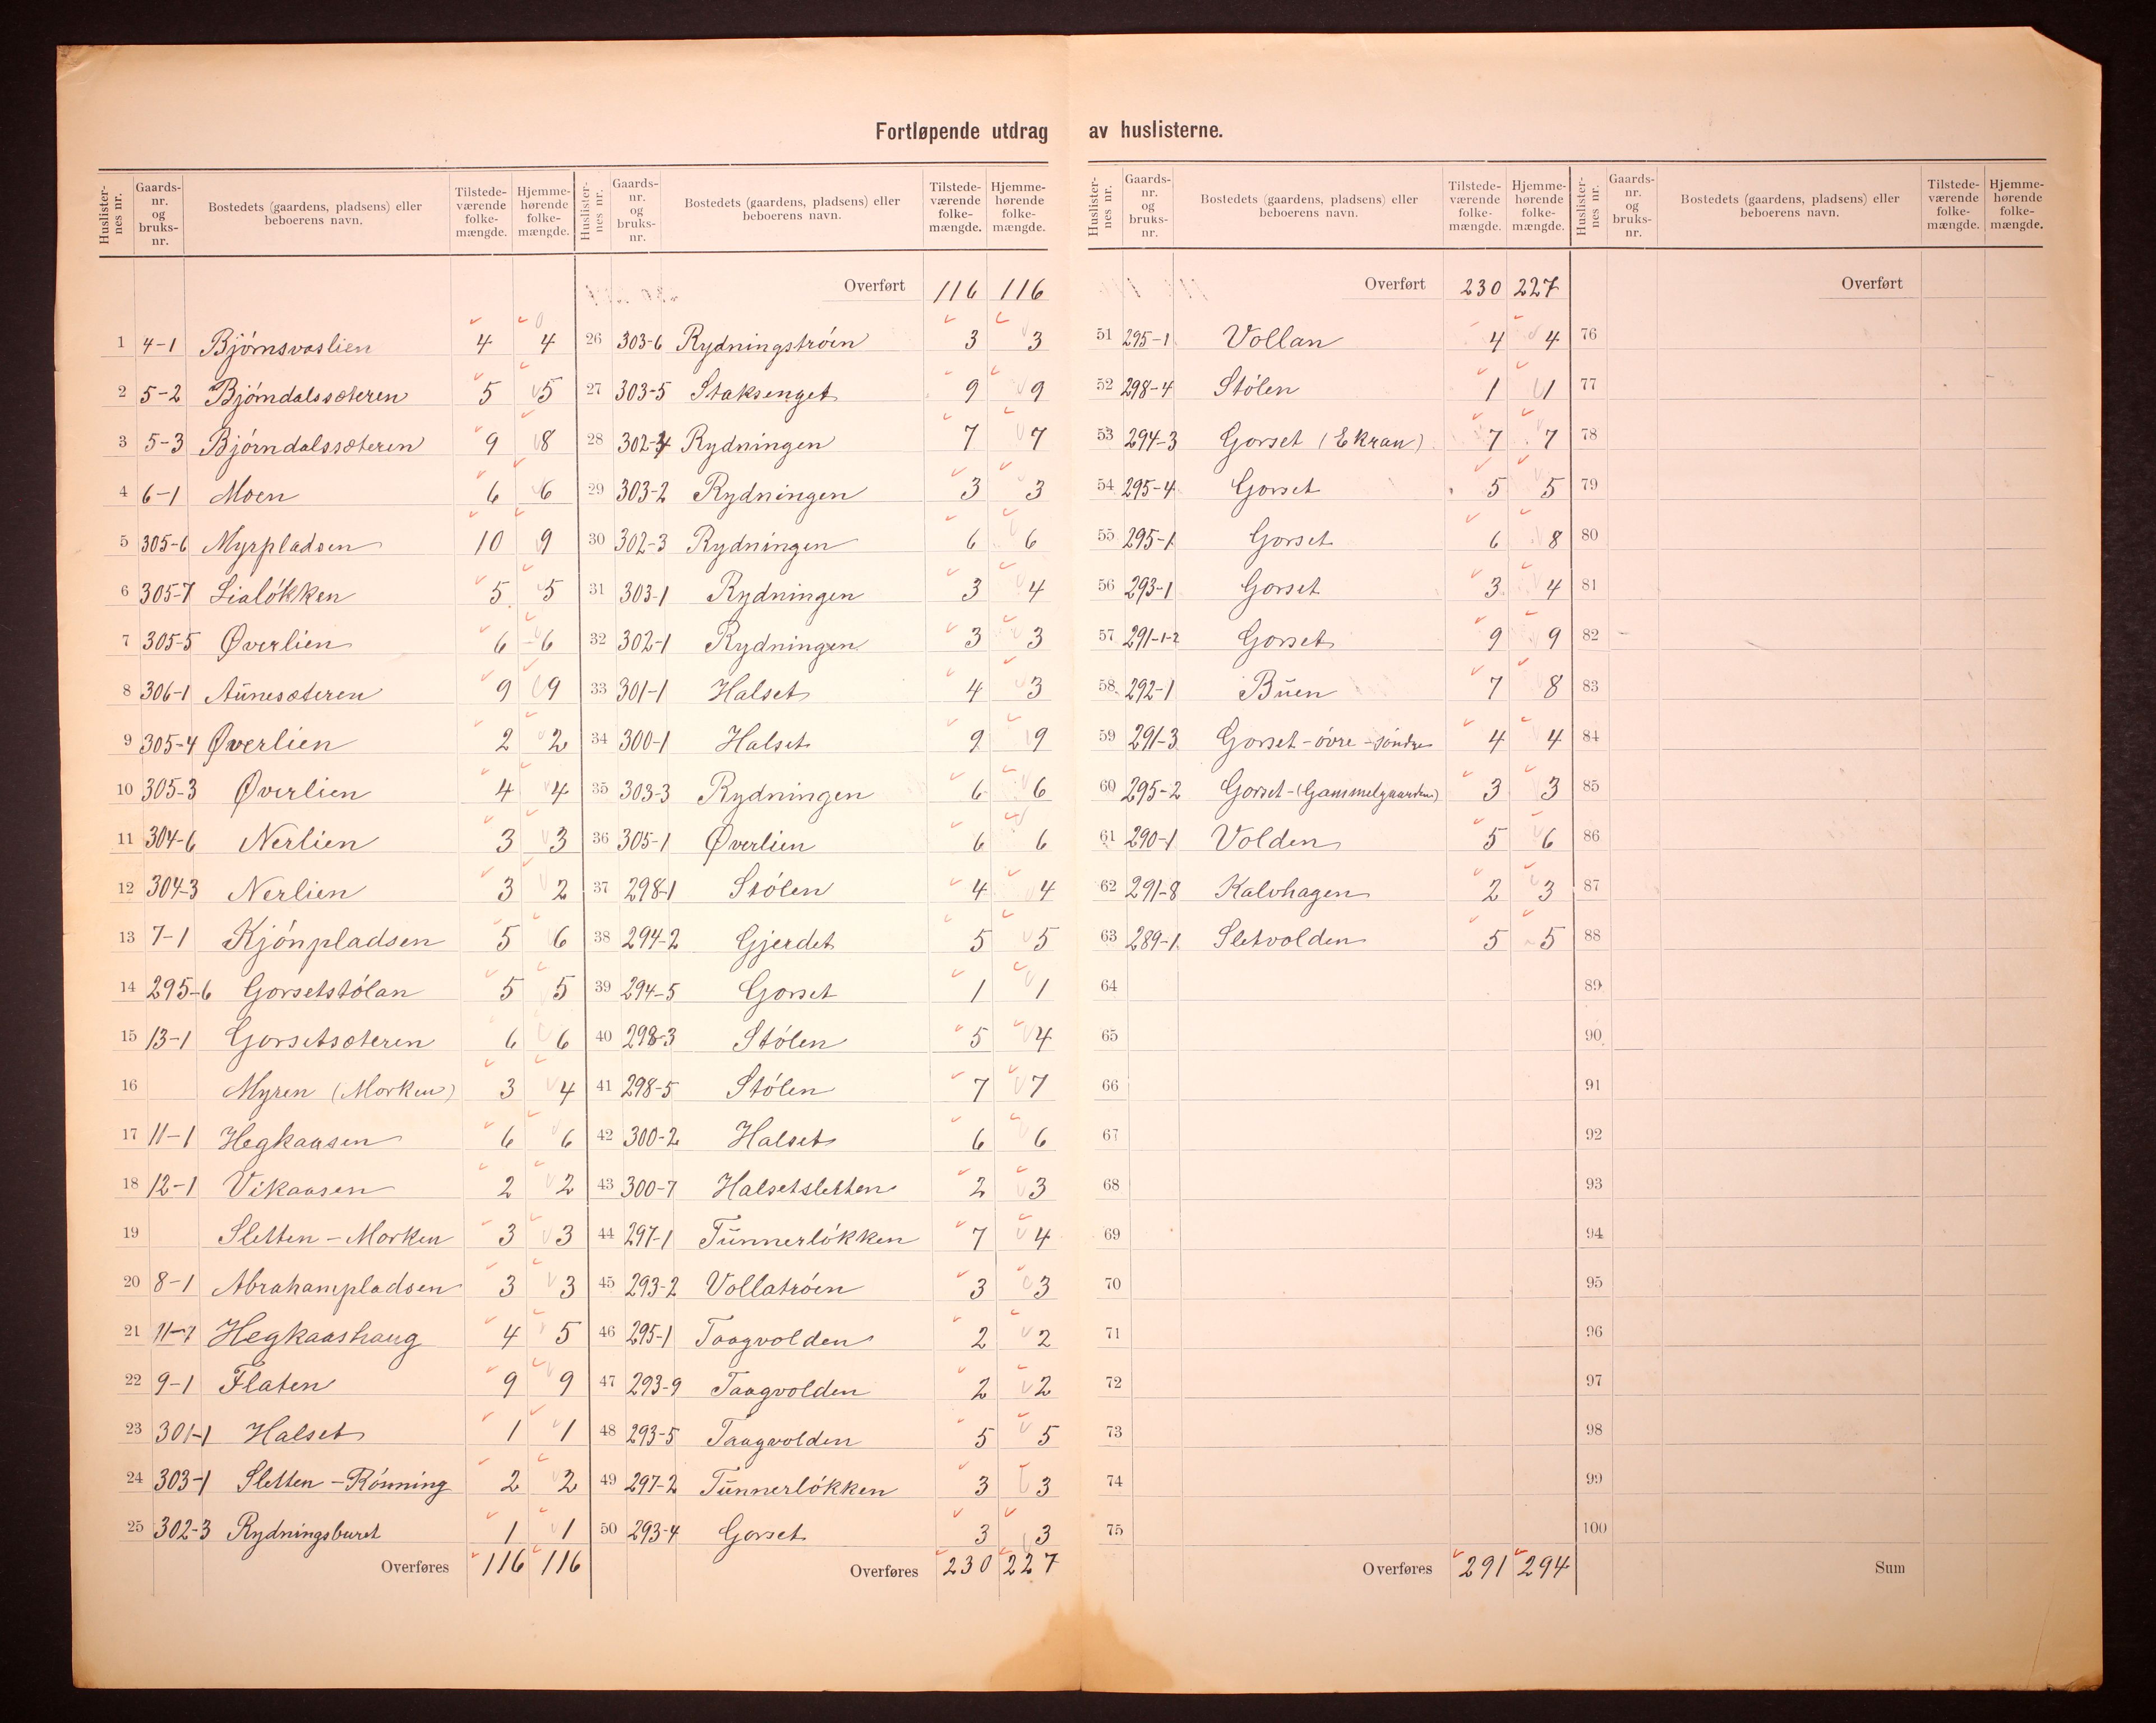 Fortløpende utdrag av huslisterne.
Huslister-nes nr. Gaards-nr. og bruks-nr. Bostedets (gaardens, pladsens) eller beboerens navn. Tilstede-værende folke-mængde. Hjemme-hørende folke-mængde.
1 4-1 Bjørnsvoslien 4 4
2 5-2 Bjørndalssæteren 5 5
3 5-3 Bjørndalssæteren 9 8
4 6-1 Moen 6 6
5 305-6 Myrpladsen 10 9
6 305-7 Lialøkken 5 5
7 305-5 Øverlien 6 6
8 306-1 Aunesæteren 9 9
9 305-4 Øverlien 2 2
10 305-3 Øverlien 4 4
11 304-6 Nerlien 3 3
12 304-3 Nerlien 3 2
13 7-1 Kjónpladsen 5 6
14 295-6 Gorsetstólan 5 5
15 13-1 Gorsetsæteren 6 6
16 Myren (Morken) 3 4
17 11-1 Hegkaasen 6 6
18 12-1 Vikaasen 2 2
19 Sletten - Morken 3 3
20 8-1 Abrahampladsen 3 3
21 11-7 Hegkaashaug 4 5
22 9-1 Flaten 9 9
23 301-1 Halset 1 1
24 303-1 Sletten - Rónning 2 2
25 302-3 Rydningsburet 1 1
Overføres 116 116
Huslister-nes nr. Gaards-nr. og bruks-nr. Bostedets (gaardens, pladsens) eller beboerens navn. Tilstede-værende folke-mængde. Hjemme-hørende folke-mængde.
Overført 116 116
26 303-6 Rydningstróen 3 3
27 303-5 Staksenget 9 9
28 302-4 Rydningen 7 7
29 303-2 Rydningen 3 3
30 302-3 Rydningen 6 6
31 303-1 Rydningen 3 4
32 302-1 Rydningen 3 3
33 301-1 Halset 4 3
34 300-1 Halset 9 9
35 303-3 Rydningen 6 6
36 305-1 Øverlien 6 6
37 298-1 Stólen 4 4
38 294-2 Gjerdet 5 5
39 294-5 Gorset 1 1
40 298-3 Stólen 5 4
41 298-5 Stólen 7 7
42 300-2 Halset 6 6
43 300-7 Halsetsletten 2 3
44 297-1 Tunnerlókken 7 4
45 293-2 Vollatróen 3 3
46 295-1 Taagvolden 2 2
47 293-9 Taagvolden 2 2
48 293-5 Taagvolden 5 5
49 297-2 Tunnerlókken 3 3
50 293-4 Gorset 3 3
Overføres 230 227
Huslister-nes nr. Gaards-nr. og bruks-nr. Bostedets (gaardens, pladsens) eller beboerens navn. Tilstede-værende folke-mængde. Hjemme-hørende folke-mængde.
Overført 230 227
51 295-1 Vollan 4 4
52 298-4 Stólen 1 1
53 294-3 Gorset (Ekran) 7 7
54 295-4 Gorset 5 5
55 295-1 Gorset 6 8
56 293-1 Gorset 3 4
57 291-1-2 Gorset 9 9
58 292-1 Buen 7 8
59 291-3 Gorset - óvre - sóndre 4 4
60 295-2 Gorset - (Gammelgaarden) 3 3
61 290-1 Volden 5 6
62 291-8 Kalvhagen 2 3
63 289-1 Sletvolden 5 5
64
65
66
67
68
69
70
71
72
73
74
75
Overføres 291 294
Huslister-nes nr. Gaards-nr. og bruks-nr. Bostedets (gaardens, pladsens) eller beboerens navn. Tilstede-værende folke-mængde. Hjemme-hørende folke-mængde.
Overført
76
77
78
79
80
81
82
83
84
85
86
87
88
89
90
91
92
93
94
95
96
97
98
99
100
Sum